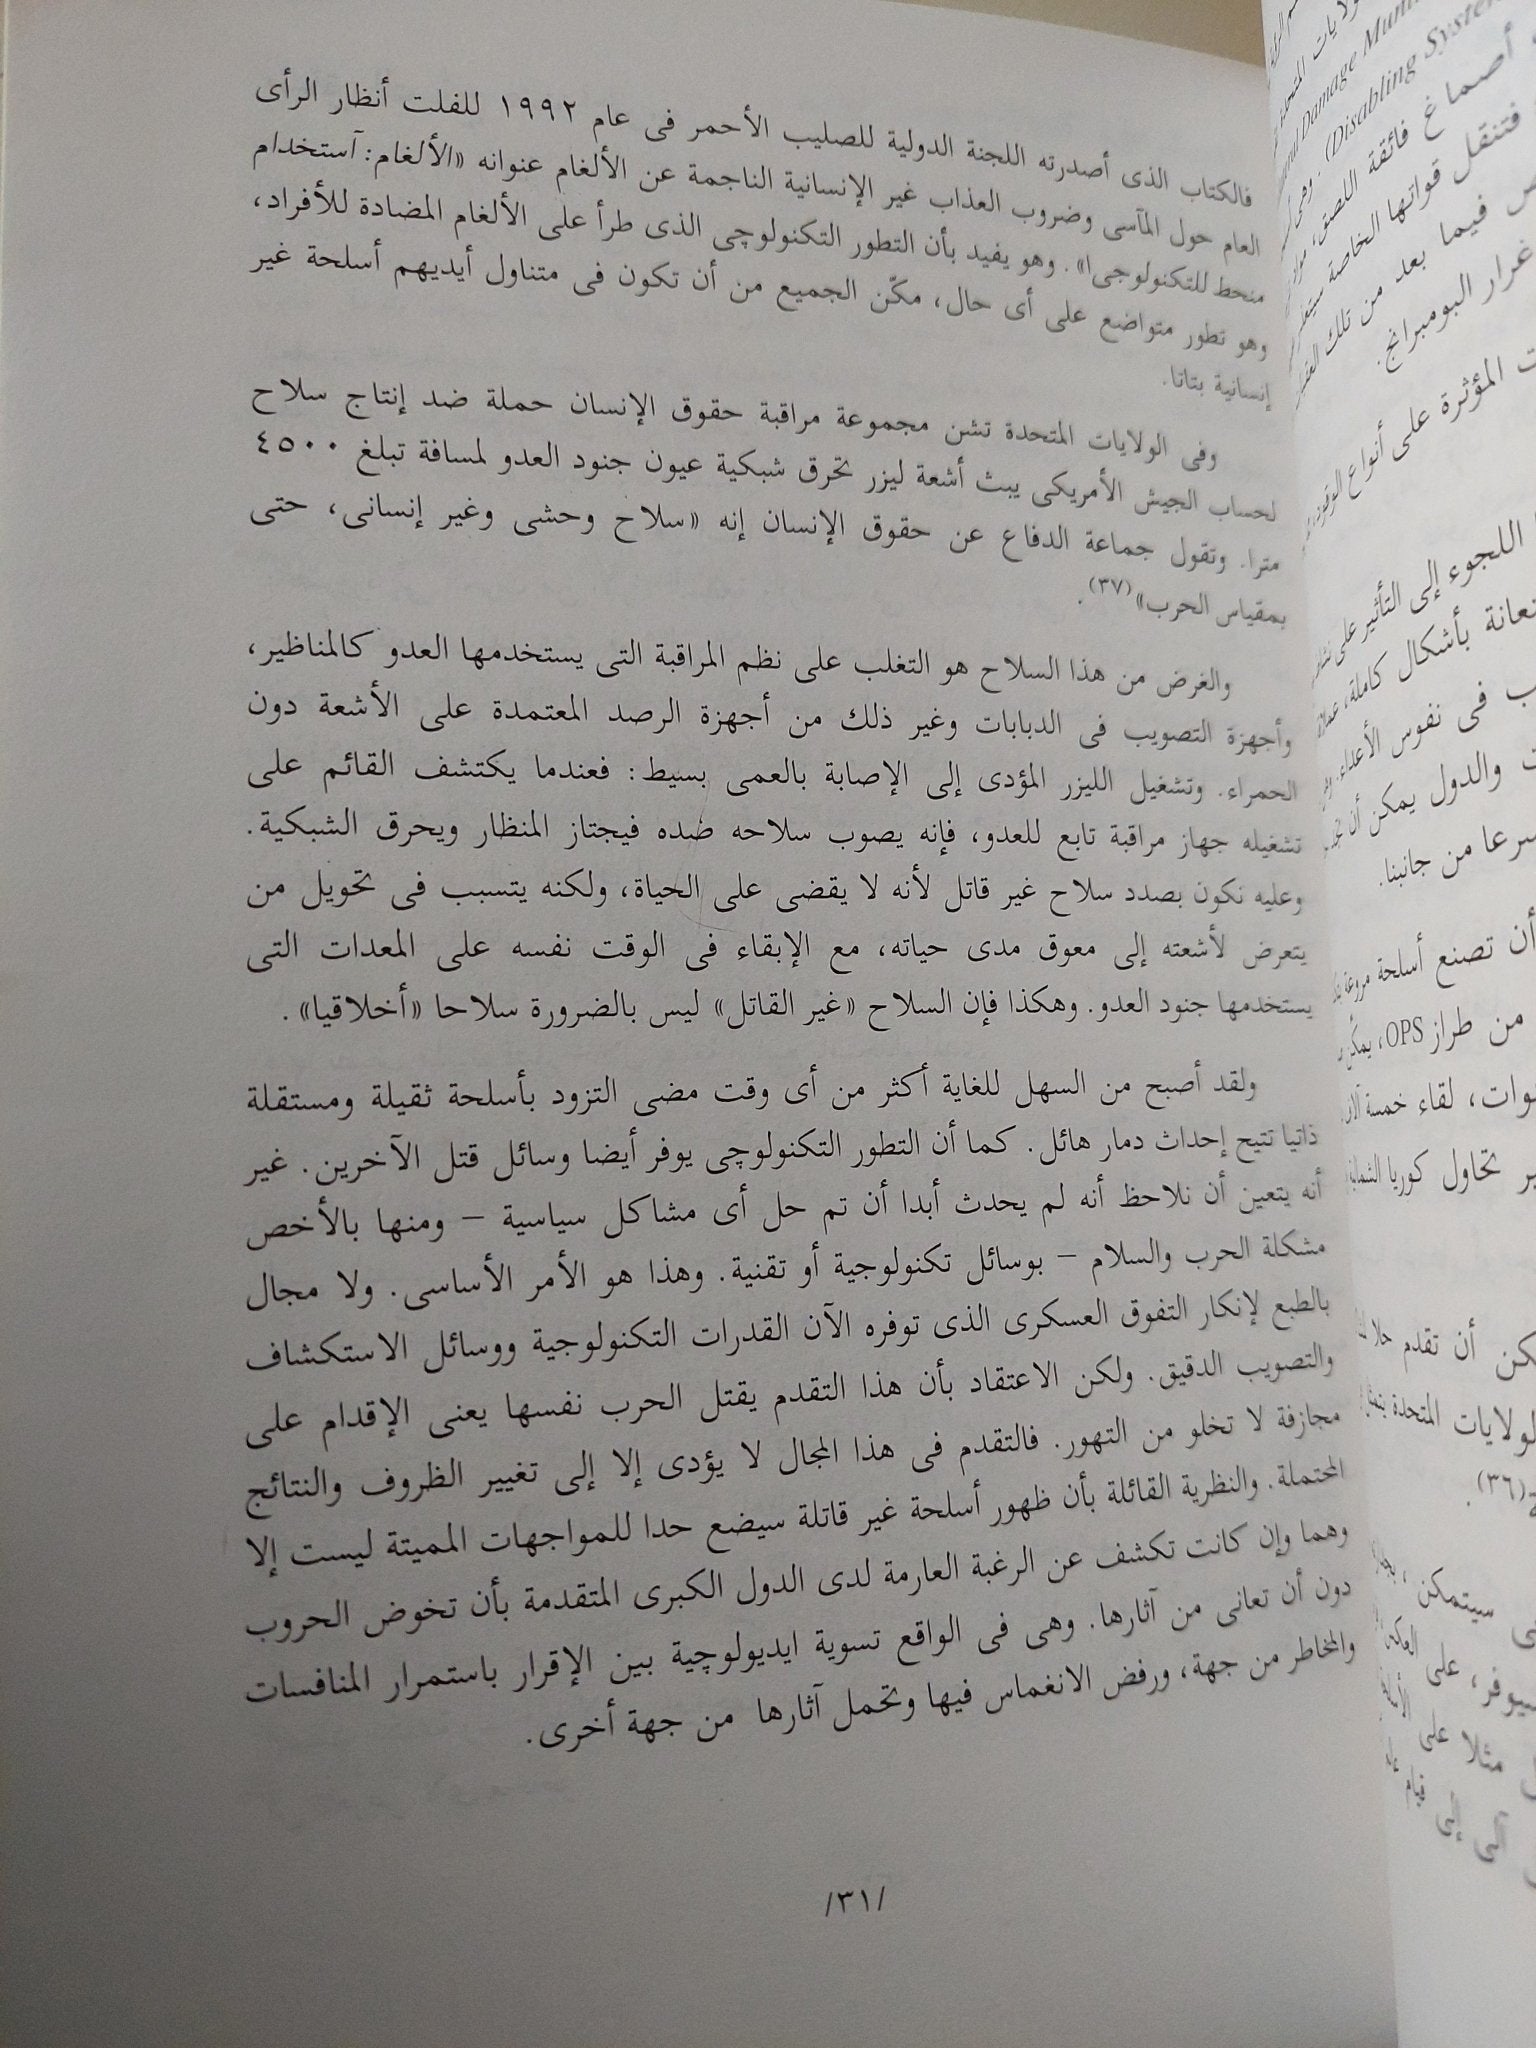 فالكتاب الذى أصدرته اللجنة الدولية للصليب الأحمر فى عام ١٩٩٢ للفلت أنظار الرأى
العام حول المآسى وضروب العذاب غير الإنسانية الناجمة عن الألغام عنوانه «الألغام: آستخدام
منحط للتكنولوجى!». وهو يفيد بأن التطور التكنولوچى الذى طرأ على الألغام المضادة للأفراد،
وهو تطور متواضع على أى حال، مكّن الجميع من أن تكون فى متناول أيديهم أسلحة غير
إنسانية بتاتا.
وفى الولايات المتحدة تشن مجموعة مراقبة حقوق الإنسان حملة ضد إنتاج سلاح
لحساب الجيش الأمريكى يبث أشعة ليزر تخرق شبكية عيون جنود العدو لمسافة تبلغ ٤٥٠٠
مترا. وتقول جماعة الدفاع عن حقوق الإنسان إنه «سلاح وحشى وغير إنسانى، حتى
بمقياس الحرب»(٣٧).
والغرض من هذا السلاح هو التغلب على نظم المراقبة التى يستخدمها العدو كالمناظير،
وأجهزة التصويب فى الدبابات وغير ذلك من أجهزة الرصد المعتمدة على الأشعة دون
الحمراء. وتشغيل الليزر المؤدى إلى الإصابة بالعمى بسيط: فعندما يكتشف القائم على
تشغيله جهاز مراقبة تابع للعدو، فإنه يصوب سلاحه ضده فيجتاز المنظار ويحرق الشبكية.
وعليه نكون بصدد سلاح غير قاتل لأنه لا يقضى على الحياة، ولكنه يتسبب فى تحويل من
يتعرض لأشعته إلى معوق مدى حياته، مع الإبقاء فى الوقت نفسه على المعدات التى
يستخدمها جنود العدو. وهكذا فإن السلاح «غير القاتل» ليس بالضرورة سلاحا «أخلاقيا».
ولقد أصبح من السهل للغاية أكثر من أى وقت مضى التزود بأسلحة ثقيلة ومستقلة
ذاتيا تتيح إحداث دمار هائل. كما أن التطور التكنولوچى يوفر أيضا وسائل قتل الآخرين. غير
أنه يتعين أن نلاحظ أنه لم يحدث أبدا أن تم حل أى مشاكل سياسية – ومنها بالأخص
مشكلة الحرب والسلام – بوسائل تكنولوجية أو تقنية. وهذا هو الأمر الأساسى. ولا مجال
بالطبع لإنكار التفوق العسكرى الذى توفره الآن القدرات التكنولوجية ووسائل الاستكشاف
والتصويب الدقيق. ولكن الاعتقاد بأن هذا التقدم يقتل الحرب نفسها يعنى الإقدام على
مجازفة لا تخلو من التهور. فالتقدم فى هذا المجال لا يؤدى إلا إلى تغيير الظروف والنتائج
المحتملة. والنظرية القائلة بأن ظهور أسلحة غير قاتلة سيضع حدا للمواجهات المميتة ليست إلا
وهما وإن كانت تكشف عن الرغبة العارمة لدى الدول الكبرى المتقدمة بأن تخوض الحروب
دون أن تعانى من آثارها. وهى فى الواقع تسوية ايديولوچية بين الإقرار باستمرار المنافسات
والمخاطر من جهة، ورفض الانغماس فيها وتحمل آثارها من جهة أخرى.
/٣١/
Damage
(Disabling System
أصماغ فائقة اللصق،
فتنقل قواتها الخاصة
فيما بعد من تلك
غرار البومبرانج.
المؤثرة على أنواع الوقود
اللجوء إلى التأثير على
بأشكال كاملة،
فى نفوس الأعداء.
والدول يمكن أن
من جانبنا.
أن تصنع أسلحة مروعة
من طراز OPS، يمكن
لقاء خمسة
تحاول كوريا الشمالية
أن تقدم حلا
المتحدة
(٣٦).
سيتمكن
على
مثلا على
إلى قيام